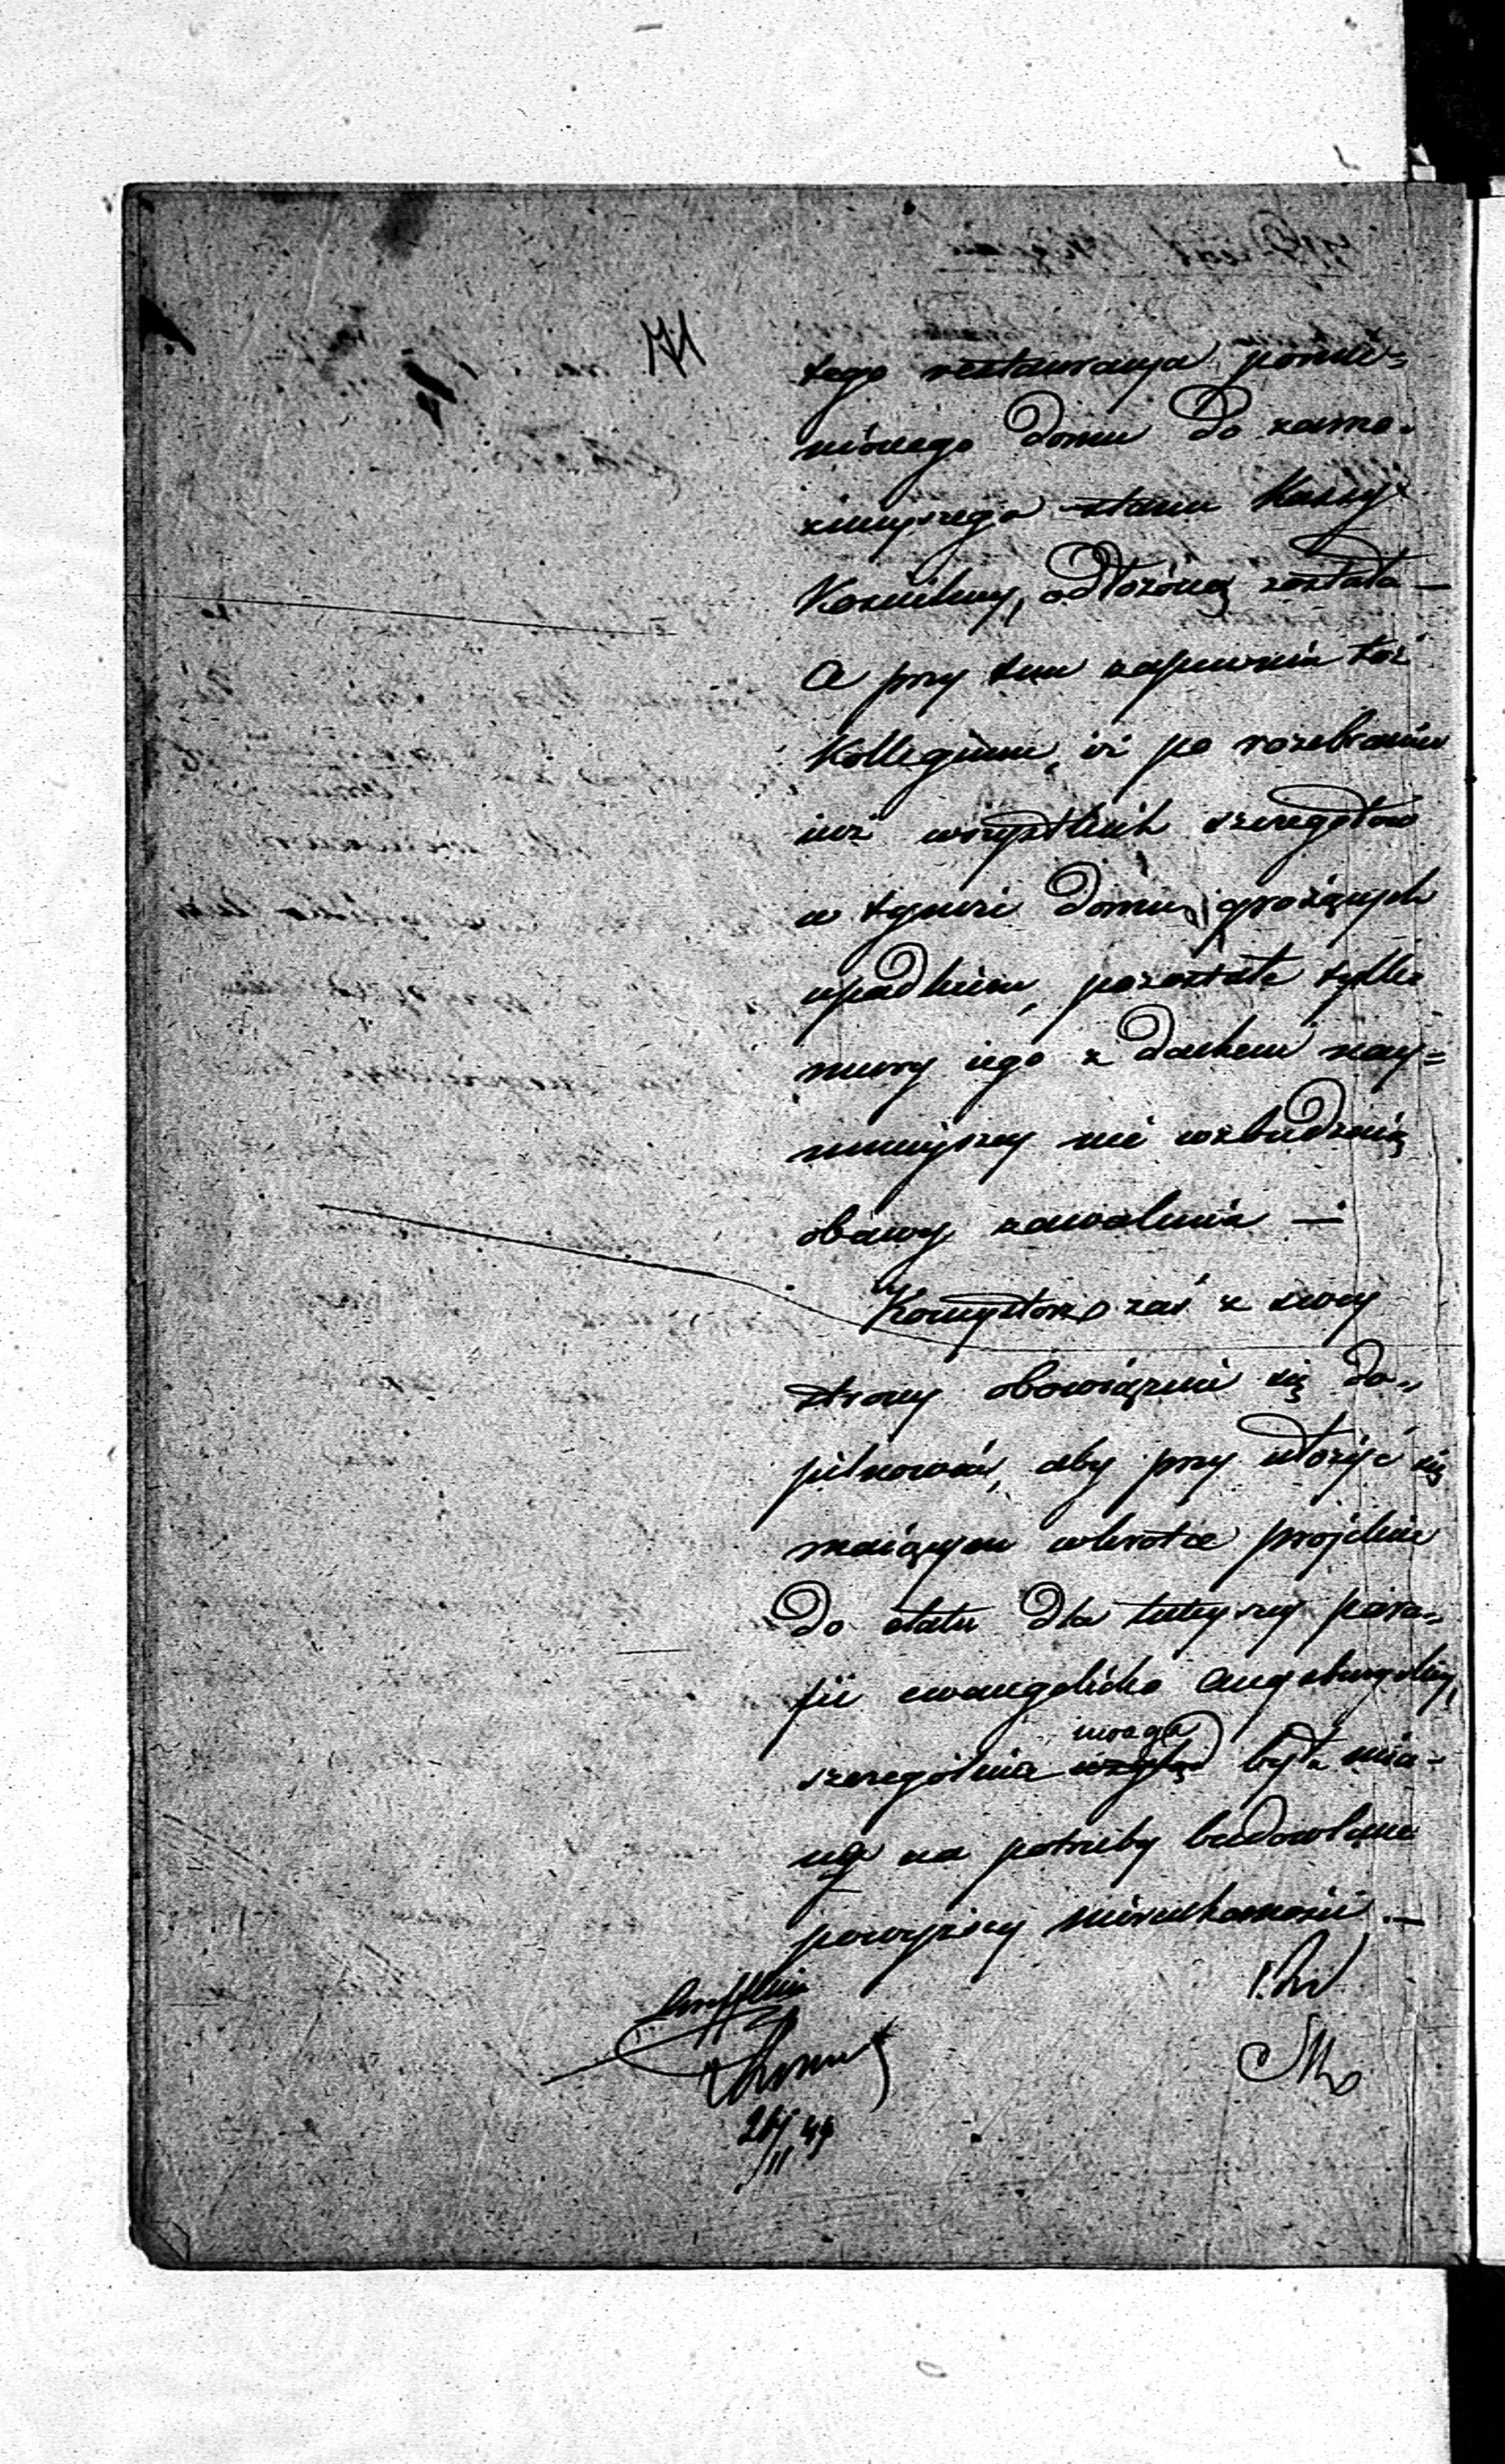 71
tego restauracya pomie=
nionego domu do zamo-
żnieyszego stanu Kassy
Kościelney, odłożoną została —
a przy tem zapewnia toż
Kollegium, iż po rozebraniu
iuż wszystkich szczegółów
w tymże domu, grożących
upadkiem, pozostałe tylko
mury iego z dachem nay=
mnieyszey nie wzbudzaią
obawy zawalenia —
Konsystorz zaś z swey
strony obowiązuie się do-
pilnować, aby przy ułożyć się
maiącym wkrotce projekcie
do etatu dla tuteyszey para-
fii ewangelicko Augsburgskiey,
szczególnie uwaga
wzgląd była mia-
ną na potrzeby budowlane
powyższey nieruchomości. —